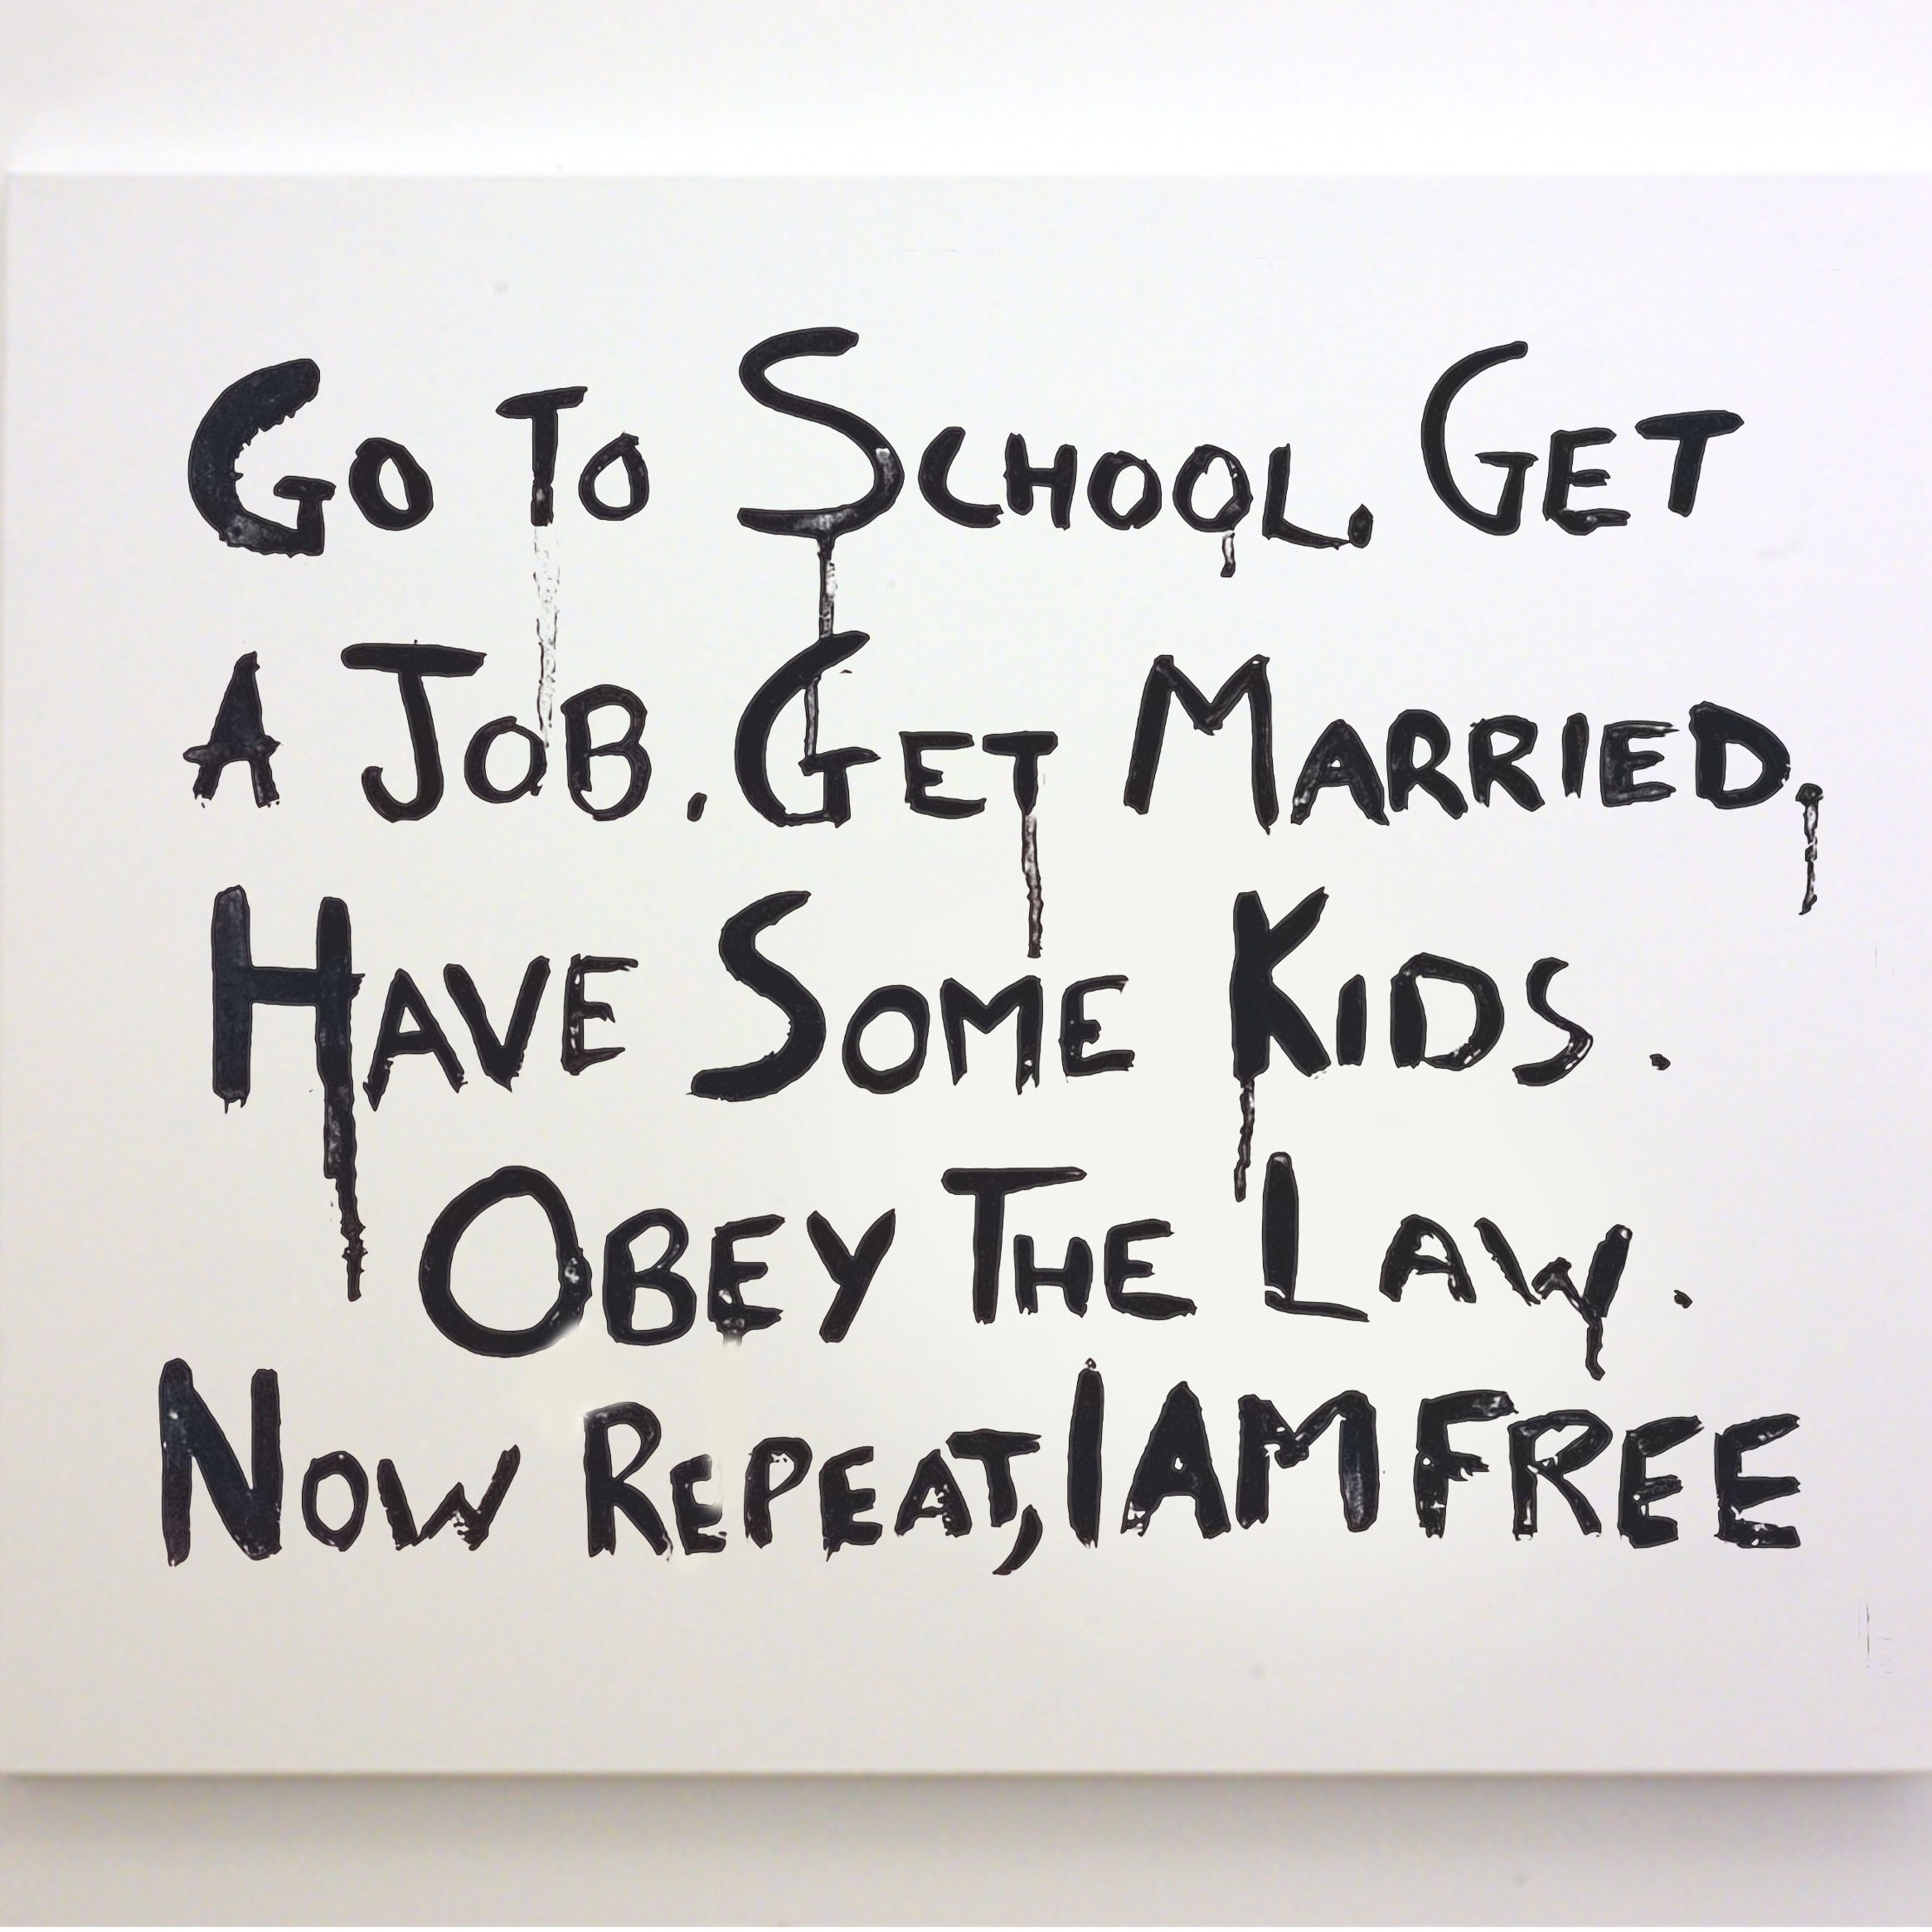 GO TO SCHOOL. GET
A JOB. GET MARRIED.
HAVE SOME KIDS.
OBEY THE LAW.
NOW REPEAT, I AM FREE